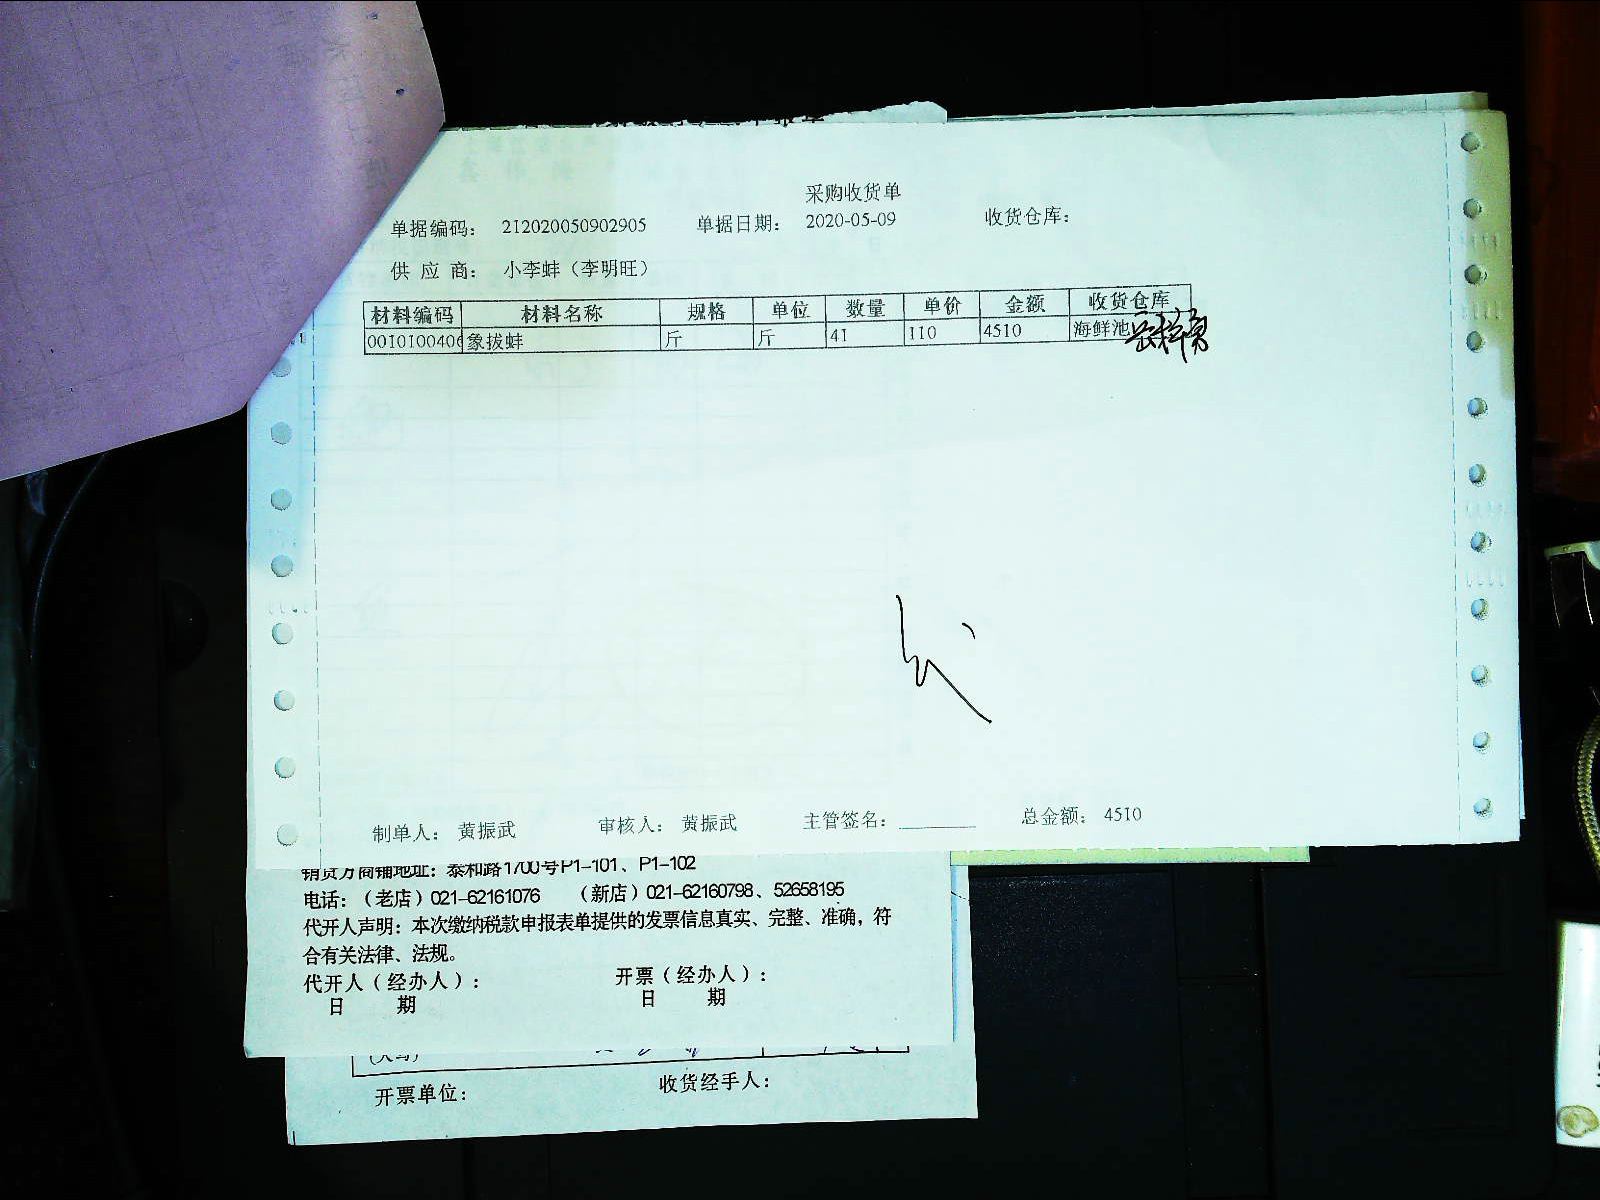 采购收货单
单据编码： 212020050902905 单据日期： 2020-05-09 收货仓库：
供 应 商： 小李蚌（李明旺）
材料编码 材料名称 规格 单位 数量 单价 金额 收货仓库
0010100406 象拔蚌 斤 斤 41 110 4510 海鲜池
制单人： 黄振武 审核人： 黄振武 主管签名： 总金额： 4510
销货方商铺地址：泰和路1700号P1-101、P1-102
电话：（老店）021-62161076 （新店）021-62160798、52658195
代开人声明：本次缴纳税款申报表单提供的发票信息真实、完整、准确，符
合有关法律、法规。
代开人（经办人）： 开票（经办人）：
日 期 日 期
（大写）
开票单位： 收货经手人：